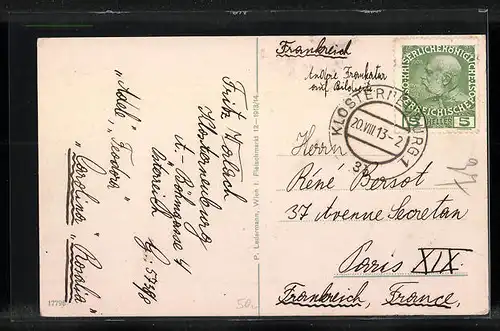 Frankreich
Andere Frankatur
auf Bildseite
KAISERLICHE KÖNIGLICHE
ÖSTERREICHISCHE POST
5 HELLER 5
KLOSTERNEUBURG 1
20.VIII.13-2
3b
Herrn
René Bersot
37 Avenue Secretan
Paris XIX.
Frankreich, France,
Fritz
Klosterneuburg
A.- Böhmgasse 4
Österreich
"Adele", "Feodora"
"Carolina" "Rosalia"
P. Ledermann, Wien I. Fleischmarkt 12 - 1913/14